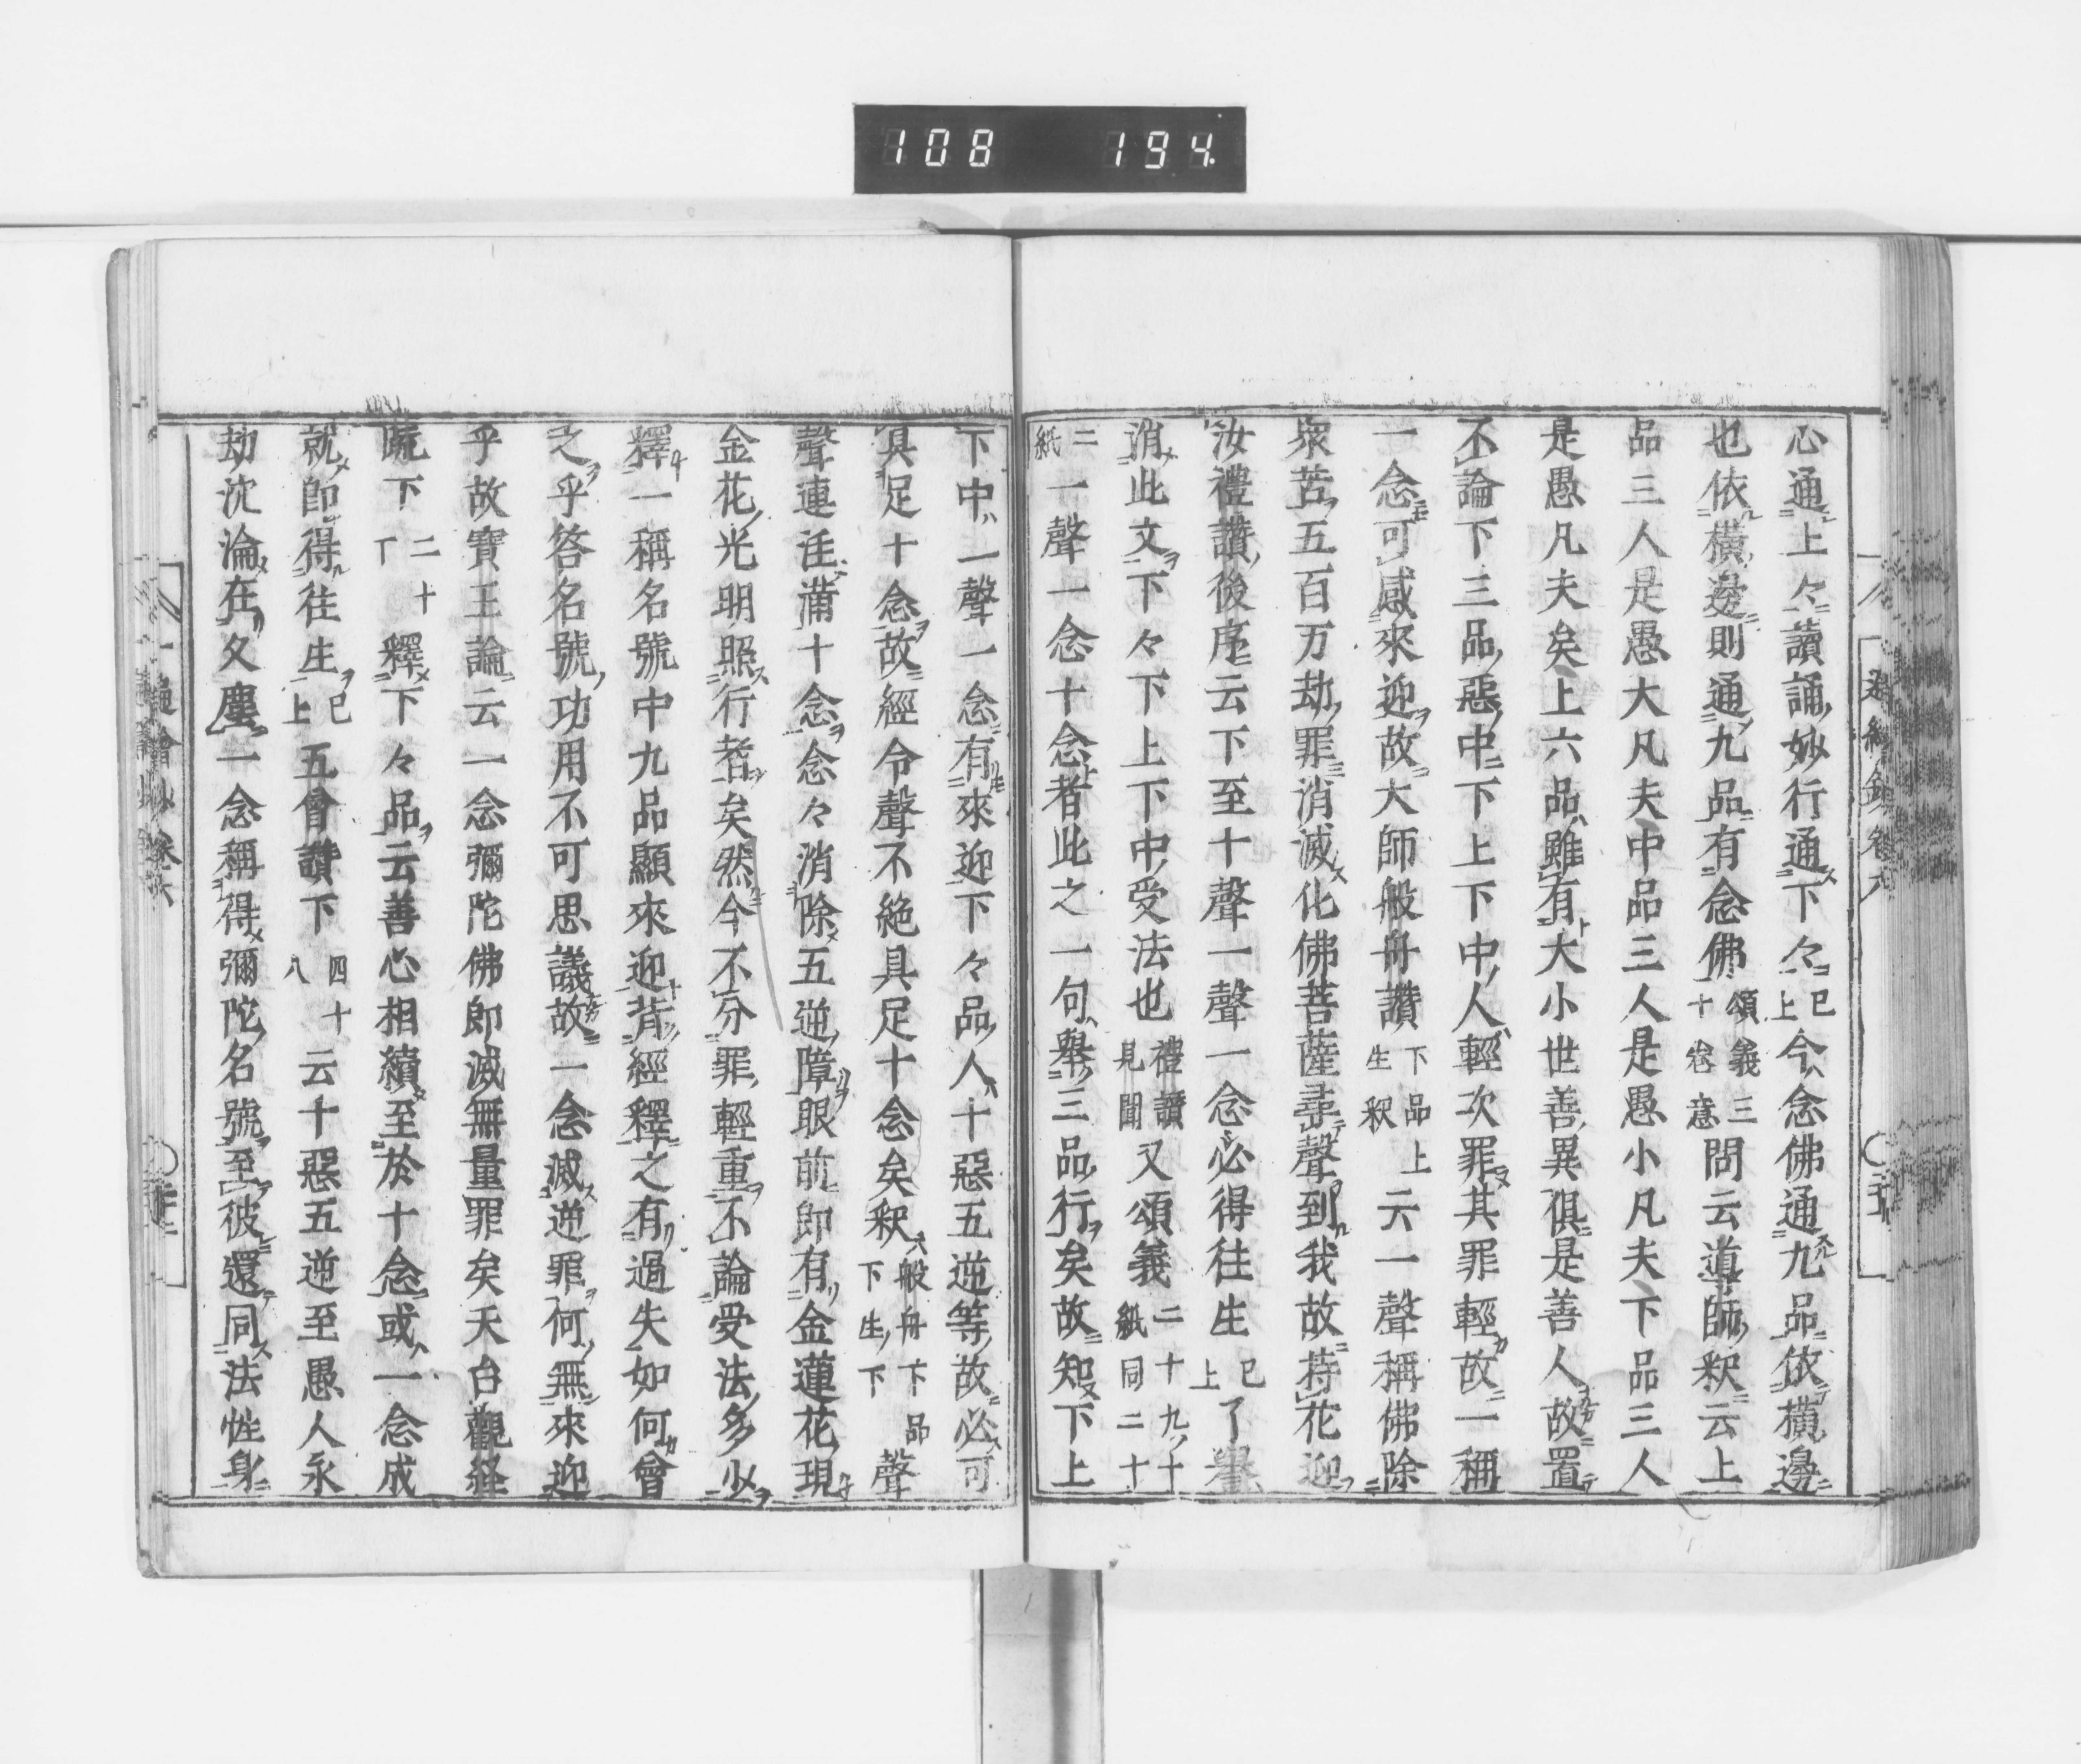 108 194.
心通上々讀誦妙行通下々已上今念佛通九品依橫邊
也依橫邊則通九品有念佛頌義三十卷意問云導師釈云上
品三人是愚大凡夫中品三人是愚小凡夫下品三人
是愚凡夫矣上六品雖有大小世善異俱是善人故置
不論下三品惡中下上下中人輕次罪其罪輕故一稱
一念可感來迎故大師般舟讚下品上生釈云一聲稱佛除
衆苦五百万劫罪消滅化佛菩薩尋聲到我故持花迎
汝禮讚後序云下至十聲一聲一念必得往生已上了舉
消此文下々下上下中受法也禮讚見聞又頌義二十九ノ十紙同二十
二紙一聲一念十念者此之一句舉三品行矣故知下上
下中一聲一念有來迎下々品人十惡五逆等故必可
具足十念故經令聲不絶具足十念矣釈般舟下品下生下聲
聲連注滿十念念々消除五逆障眼前即有金蓮花現
金花光明照行者矣然今不分罪輕重不論受法多少
釋一稱名號中九品顯來迎背經釋之有過失如何會
之乎答名號功用不可思議故一念滅逆罪何無來迎
乎故寶王論云一念彌陀佛即滅無量罪矣天台觀経
疏下二十丁釋下々品云善心相續至於十念或一念成
就即得往生已上五會讚下四十八云十惡五逆至愚人永
劫沈淪在久塵一念稱得彌陀名號至彼還同法性身